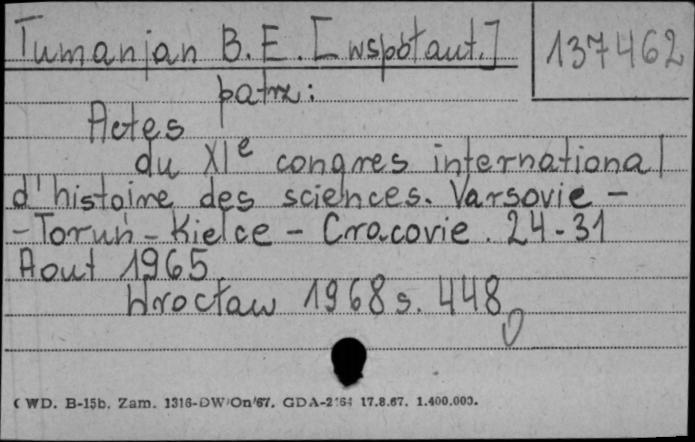 Tumanjan B. E. [wspótaut.]
137462
patrz:
Actes
du XIe congres international
d'histoire des sciences. Varsovie -
- Toruń - Kielce - Cracovie. 24-31
Aout 1965
Wrocław 1968 s. 448
WD. B-15b. Zam. 1316-DW/On/67. GDA-2164 17.8.67. 1.400.000.